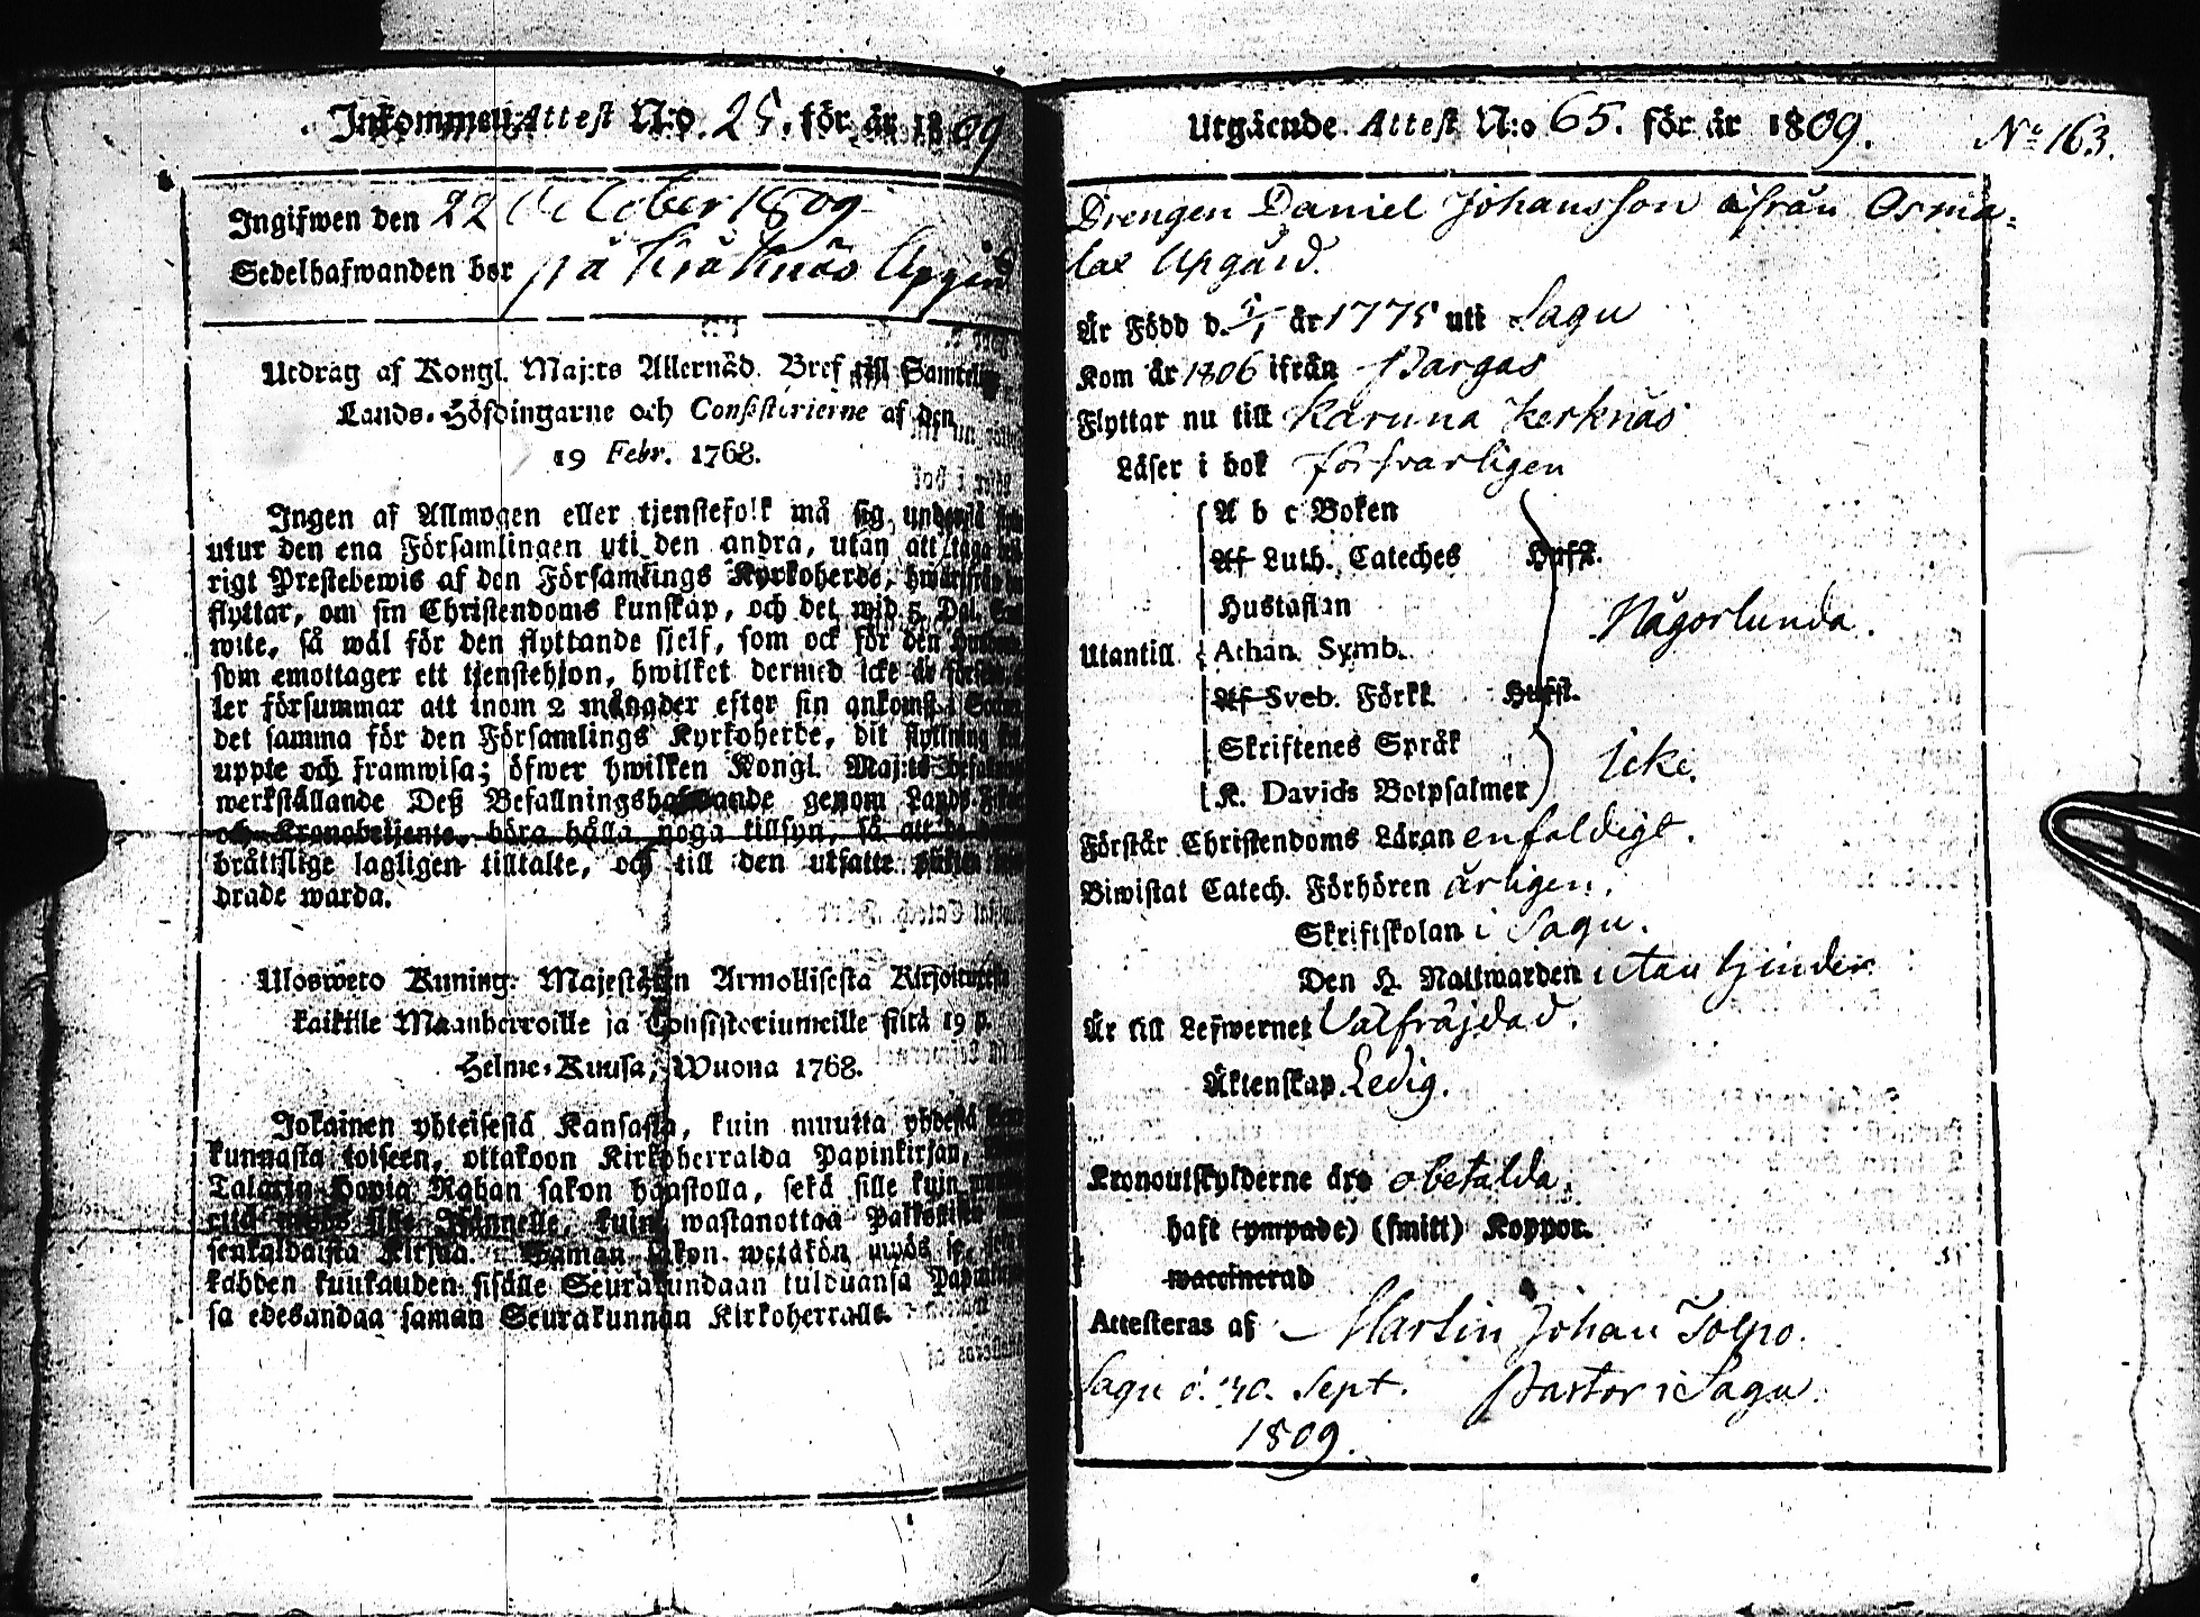 Inkommen Attest N:o 25. för år 1809
Ingifwen den 22 October 1809
Sedelhafwanden bor på Kräknäs Upgård
Utdrag af Kongl. Maj:ts Allernåd. Bref till Samtelige
Lands-Höfdingarne och Consistorierne af den
19 Febr. 1768.
Ingen af Allmogen eller tjenstefolk må sig understå
utur den ena Församlingen uti den andra, utan att taga
rigt Prestebewis af den Församlings Kyrkoherde, hwarifrån
flyttar, om sin Christendoms kunskap, och det wid 5 Dal.
wite, så wäl för den flyttande sjelf, som ock för den
som emottager ett tjenstehjon, hwilket dermed icke är
ler försummar att inom 2 månader efter sin ankomst i
det samma för den Församlings Kyrkoherde, dit flyttning
uppte och framwisa; öfwer hwilken Kongl. Maj:ts
werkställande Deß Befallningshafwande genom Lands
och Kronobetjente, böra hålla noga tillsyn, så att
bråttslige lagligen tilltalte, och till den utsatte plikten
drade warda.
Uloswetto Kuning. Majestätin Armollisesta Kirjoituxesta
kaikille Maanherroille ja Consistoriumeille siitä 19 p.
Helme-Kuusa, Wuona 1768.
Jokainen yhteisestä Kansasta, kuin muutta yhdestä
kunnasta toiseen, ottakoon Kirkoherralda Papinkirjan,
Talarin Hopia Rahan sakon haastolla, sekä sille kuin
että myös sille Isännelle, kuin wastanottaa
senkaldaista Kirjaa. Saman sakon wetäkön myös se,
kahden kuukauden sisälle Seurakundaan tulduansa
sa edesandaa saman Seurakunnan Kirkoherralle.
Utgående Attest N:o 65. för år 1809. No 163.
Drengen Daniel Johansson ifrån Osma=
lax Upgård.
Är Född d. 5/1 år 1775 uti Sagu
Kom år 1806 ifrån Pargas
Flyttar nu till Karuna Kerknäs
Läser i bok försvarligen
A b c Boken
Af Luth. Cateches Hufst.
Hustaflan
Utantill Athan. Symb. Någorlunda.
Af Sveb. Förkl. Hufst.
Skriftenes Språk Icke.
K. Davids Botpsalmer
Förstår Christendoms Läran enfaldigt.
Biwistat Catech. Förhören årligen.
Skriftskolan i Sagu.
Den H. Nattwarden utan hinder
Är till Lefwernet Välfräjdad.
Äktenskap Ledig.
Kronoutskylderne äro obetalda.
haft (ympade) (smitt) Koppor.
waccinerad
Attesteras af Martin Johan Tolpo.
Sagu d. 30. Sept. Pastor i Sagu.
1809.